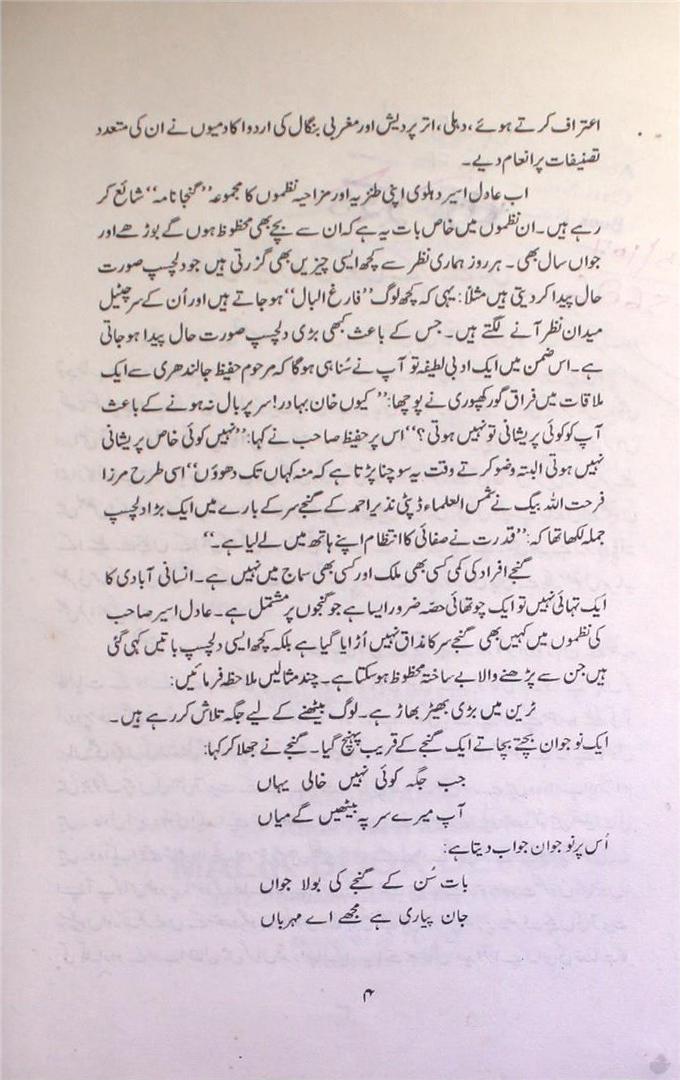 اعتراف کرتے ہوئے، دہلی، اتر پردیش اور مغربی بنگال کی اردو اکادمیوں نے ان کی متعدد
تصنیفات پر انعام دیے۔
اب عادل اسیر دہلوی اپنی طنزیہ اور مزاحیہ نظموں کا مجموعہ ”گنجا نامہ“ شائع کر
رہے ہیں۔ ان نظموں میں خاص بات یہ ہے کہ ان سے بچے بھی محظوظ ہوں گے بوڑھے اور
جواں سال بھی۔ ہر روز ہماری نظر سے کچھ ایسی چیزیں بھی گزرتی ہیں جو دلچسپ صورت
حال پیدا کر دیتی ہیں مثلاً: یہی کہ کچھ لوگ ”فارغ البال“ ہو جاتے ہیں اور اُن کے سر چٹیل
میدان نظر آنے لگتے ہیں۔ جس کے باعث کبھی بڑی دلچسپ صورت حال پیدا ہو جاتی
ہے۔ اس ضمن میں ایک ادبی لطیفہ تو آپ نے سُنا ہی ہوگا کہ مرحوم حفیظ جالندھری سے ایک
ملاقات میں فراق گورکھپوری نے پوچھا: ”کیوں خان بہادر! سر پر بال نہ ہونے کے باعث
آپ کو کوئی پریشانی تو نہیں ہوتی؟“ اس پر حفیظ صاحب نے کہا: ”نہیں کوئی خاص پریشانی
نہیں ہوتی البتہ وضو کرتے وقت یہ سوچنا پڑتا ہے کہ منہ کہاں تک دھوؤں“ اسی طرح مرزا
فرحت اللہ بیگ نے شمس العلماء ڈپٹی نذیر احمد کے گنجے سر کے بارے میں ایک بڑا دلچسپ
جملہ لکھا تھا کہ: ”قدرت نے صفائی کا انتظام اپنے ہاتھ میں لے لیا ہے۔“
گنجے افراد کی کمی کسی بھی ملک اور کسی بھی سماج میں نہیں ہے۔ انسانی آبادی کا
ایک تہائی نہیں تو ایک چوتھائی حصّہ ضرور ایسا ہے جو گنجوں پر مشتمل ہے۔ عادل اسیر صاحب
کی نظموں میں کہیں بھی گنجے سر کا مذاق نہیں اُڑایا گیا ہے بلکہ کچھ ایسی دلچسپ باتیں کہی گئی
ہیں جن سے پڑھنے والا بے ساختہ محظوظ ہو سکتا ہے۔ چند مثالیں ملاحظہ فرمائیں:
ٹرین میں بڑی بھیڑ بھاڑ ہے۔ لوگ بیٹھنے کے لیے جگہ تلاش کر رہے ہیں۔
ایک نوجوان بچتے بچاتے ایک گنجے کے قریب پہنچ گیا۔ گنجے نے جھلا کر کہا:
جب جگہ کوئی نہیں خالی یہاں
آپ میرے سر پہ بیٹھیں گے میاں
اُس پر نوجوان جواب دیتا ہے:
بات سُن کے گنجے کی بولا جواں
جان پیاری ہے مجھے اے مہرباں
۴